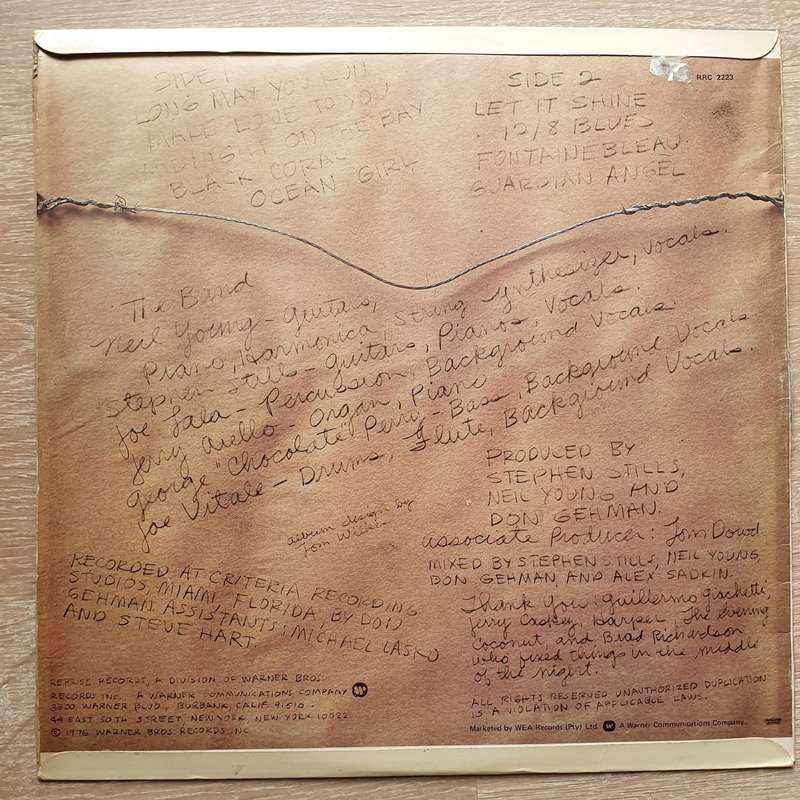 SIDE 1
LONG MAY YOU RUN
MAKE LOVE TO YOU
MIDNIGHT ON THE BAY
BLACK CORAL
OCEAN GIRL
SIDE 2
LET IT SHINE
12/8 BLUES
FONTAINEBLEAU
GUARDIAN ANGEL
RRC 2223
The Band
Neil Young - Guitars,
Piano, Harmonica, String synthesizer, vocals.
Stephen Stills - Guitars, Pianos, Vocals.
Joe Lala - Percussion, Background Vocals.
Jerry Aiello - Organ, Piano
George "Chocolate" Perry - Bass, Background Vocals
Joe Vitale - Drums, Flute, Background Vocals.
album design by
Tom Wilkes
PRODUCED BY
STEPHEN STILLS,
NEIL YOUNG AND
DON GEHMAN.
associate Producer: Tom Dowd
MIXED BY STEPHEN STILLS, NEIL YOUNG,
DON GEHMAN, AND ALEX SADKIN.
RECORDED AT CRITERIA RECORDING
STUDIOS, MIAMI, FLORIDA, BY DON
GEHMAN. ASSISTANTS: MICHAEL LASKO
AND STEVE HART.
Thank You: Guillermo Giachetti,
Jerry Caskey, Harper, The evening
Coconut, and Brad Richardson
who fixed things in the middle
of the night.
REPRISE RECORDS, A DIVISION OF WARNER BROS.
RECORDS INC. A WARNER COMMUNICATIONS COMPANY
3300 WARNER BLVD., BURBANK, CALIF. 91510.
44 EAST 50TH STREET, NEW YORK, NEW YORK 10022
© 1976 WARNER BROS. RECORDS INC.
ALL RIGHTS RESERVED UNAUTHORIZED DUPLICATION
IS A VIOLATION OF APPLICABLE LAWS.
Marketed by WEA Records (Pty) Ltd. A Warner Communications Company.